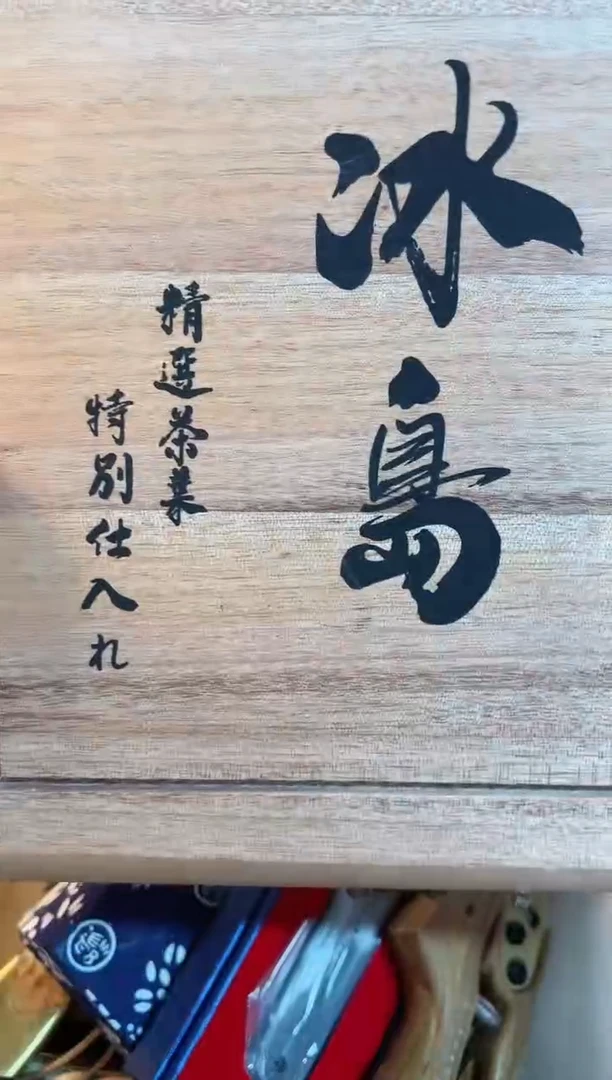 冰島
精選茶葉
特別仕入れ